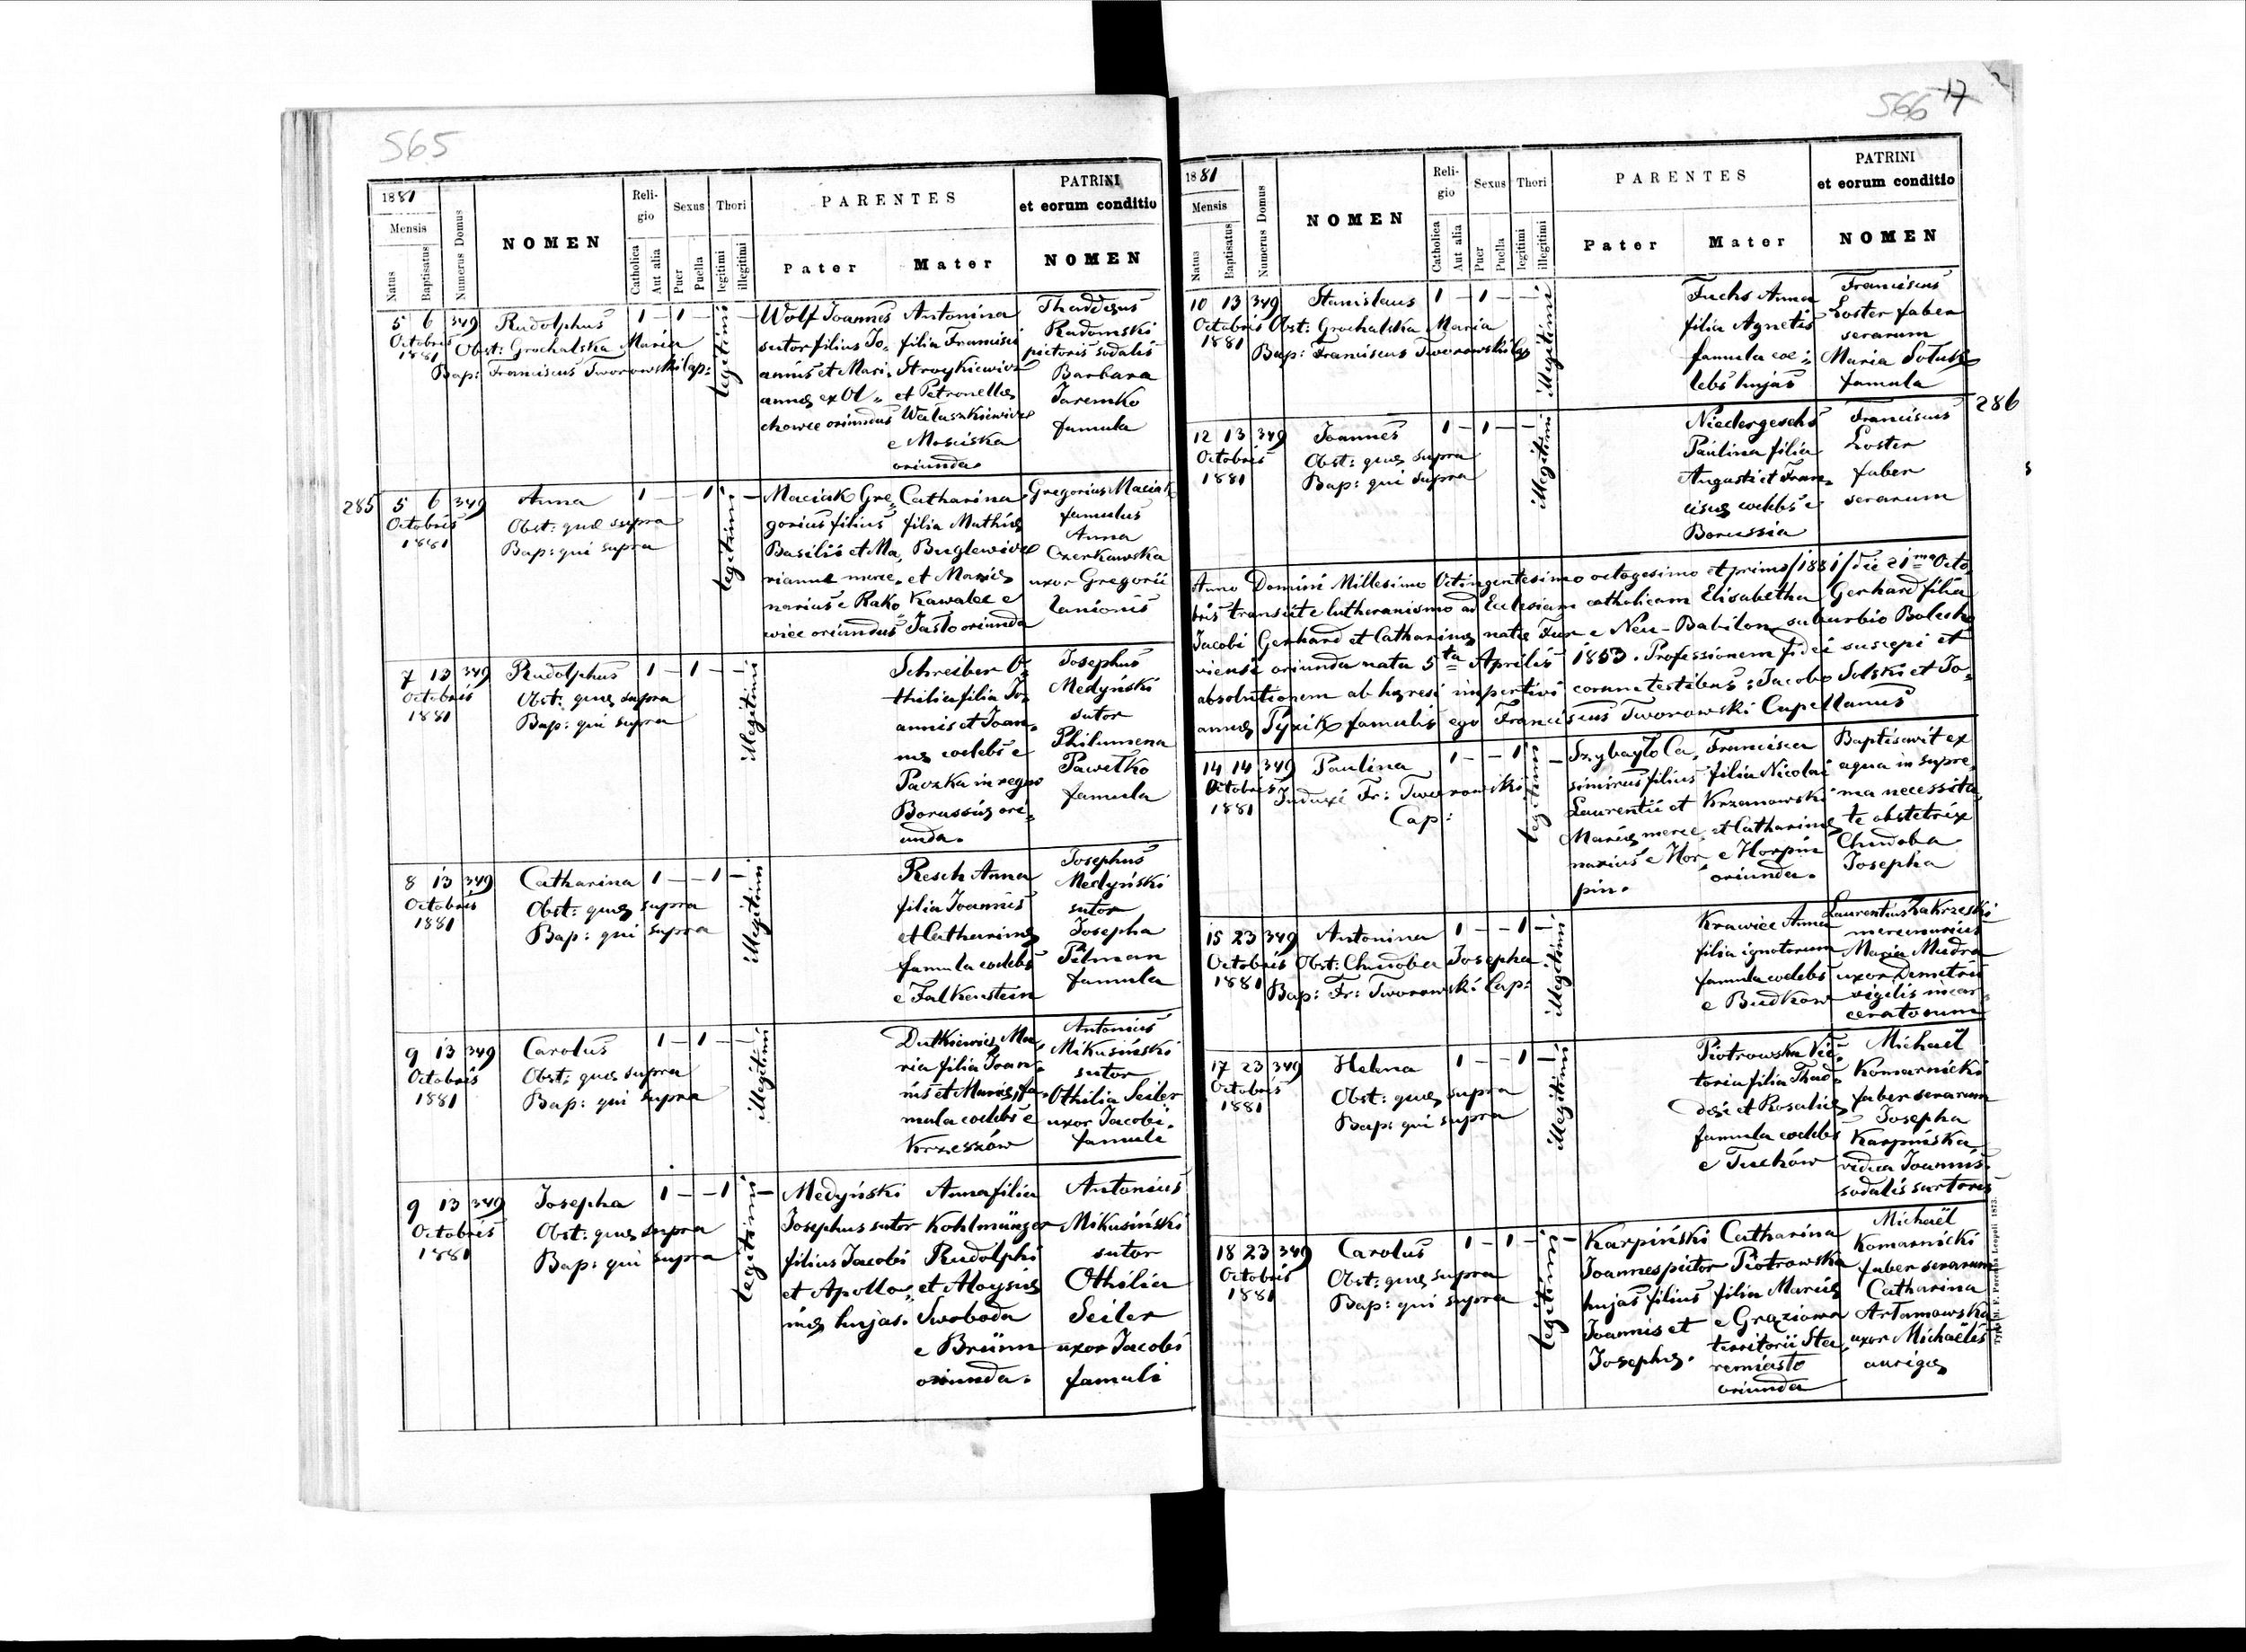 565
1881
Mensis
Natus
Baptisatus
Numerus Domus
NOMEN
Religio
Catholica
Aut alia
Sexus
Puer
Puella
Thori
legitimi
illegitimi
PARENTES
Pater
Mater
PATRINI
et eorum conditio
NOMEN
5 6 349
Octobris
1881
Rudolphus
Obst: Grochalska Maria
Bap: Franciscus Tworowski Cap:
1 – 1 – –
legitimi
Wolf Joannes
sutor filius Jo„
annis et Mari„
annæ ex Ol„
chowce oriundus
Antonina
filia Francisci
Stroykiewicz
et Petronellæ
Waluszkiewicz
e Mosciska
oriunda.
Thaddæus
Radomski
pictoris sodalis
Barbara
Jaremko
famula
285
5 6 349
Octobris
1881
Anna
Obst: quæ supra
Bap: qui supra
1 – – 1 –
legitimi
Maciak Gre„
gorius filius
Basilii et Ma„
riannæ merce„
narius e Rako„
wice oriundus
Catharina
filia Mathiæ
Buglewicz
et Mariæ
Kawalec e
Jasło oriunda
Gregorius Maciak
famulus
Anna
Czerkawska
uxor Gregorii
lanionis
7 13 349
Octobris
1881
Rudolphus
Obst: quæ supra
Bap: qui supra
1 – 1 – –
illegitimi
Schreiber O„
thilia filia Jo„
annis et Joan„
næ coelebs e
Paczka in regno
Borussiæ ori„
unda.
Josephus
Medyński
sutor
Philumena
Pawełko
famula
8 13 349
Octobris
1881
Catharina
Obst: quæ supra
Bap: qui supra
1 – – 1 –
illegitimi
Resch Anna
filia Joannis
et Catharinæ
famula coelebs
e Falkenstein
Josephus
Medyński
sutor
Josepha
Pilman
famula
9 13 349
Octobris
1881
Carolus
Obst: quæ supra
Bap: qui supra
1 – 1 – –
illegitimi
Dutkiewicz Ma„
ria filia Joan„
nis et Mariæ, fa„
mula coelebs e
Krzeszów
Antonius
Mikusiński
sutor
Othilia Seiler
uxor Jacobi
famuli
9 13 349
Octobris
1881
Josepha
Obst: quæ supra
Bap: qui supra
1 – – 1 –
legitimi
Medyński
Josephus sutor
filius Jacobi
et Apollo„
niæ hujas.
Anna filia
Kohlmünzer
Rudolphi
et Aloysiæ
Swoboda
e Brünn
oriunda.
Antonius
Mikusiński
sutor
Othilia
Seiler
uxor Jacobi
famuli
566
17
1881
Mensis
Natus
Baptisatus
Numerus Domus
NOMEN
Religio
Catholica
Aut alia
Sexus
Puer
Puella
Thori
legitimi
illegitimi
PARENTES
Pater
Mater
PATRINI
et eorum conditio
NOMEN
10 13 349
Octobris
1881
Stanislaus
Obst: Grochalska Maria
Bap: Franciscus Tworowski Cap
1 – 1 – –
illegitimi
Fuchs Anna
filia Agnetis
famula coe„
lebs hujas
Franciscus
Loster faber
serarum
Maria Soluk
famula
286
12 13 349
Octobris
1881
Joannes
Obst: quæ supra
Bap: qui supra
1 – 1 – –
illegitimi
Niedergesehs
Paulina filia
Augusti et Fran„
ciscæ coelebs e
Borussia
Franciscus
Loster
faber
serarum
Anno Domini Millesimo Octingentesimo octogesimo et primo /1881/ die 21ma Octo„
bris transiit e lutheranismo ad Ecclesiam catholicam Elisabetha Gerhard filia
Jacobi Gerhard et Catharinæ natæ Fux e Neu-Babilon suburbio Bolecho„
viensi oriunda nata 5ta Aprilis 1853. Professionem fidei suscepi et
absolutionem ab hæresi impertivi coram testibus: Jacobo Solski et Jo„
annes Tyxik famulis ego Franciscus Tworowski Capellanus
14 14 349
Octobris
1881
Paulina
Induxi Fr: Tworowski
Cap:
1 – – 1 –
legitimi
Szybayło Ca„
simirus filius
Laurentii et
Mariæ merce„
narius e Hor„
pin.
Francisca
filia Nicolai
Krzanowski
et Catharinæ
e Horpin
oriunda.
Baptisavit ex
aqua in supre„
ma necessita„
te obstetrix
Chudoba
Josepha
15 23 349
Octobris
1881
Antonina
Obst: Chudoba Josepha
Bap: Fr: Tworowski Cap:
1 – – 1 –
illegitimi
Krawiec Anna
filia ignotorum
famula coelebs
e Budków
Laurentius Zakrzeski
mercenarius
Maria Mudra
uxor Demetrii
vigilis incar„
ceratorum
17 23 349
Octobris
1881
Helena
Obst: quæ supra
Bap: qui supra
1 – – 1 –
illegitimi
Piotrowska Vic„
toria filia Thad„
dæi et Rosaliæ
famula coelebs
e Tuchów
Michaël
Komarnicki
faber serarum
Josepha
Karpińska
vidua Joannis
sodalis sartoris
18 23 349
Octobris
1881
Carolus
Obst: quæ supra
Bap: qui supra
1 – 1 – –
legitimi
Karpiński
Joannes pictor
hujas filius
Joannis et
Josephæ.
Catharina
Piotrowska
filia Mariæ
e Grąziowa
territorii Sta„
remiasto
oriunda
Michaël
Komarnicki
faber serarum
Catharina
Artamowska
uxor Michaëlis
aurigæ